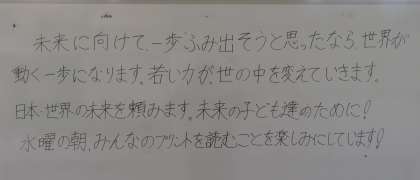 未来に向けて、一歩ふみ出そうと思ったなら、世界が
動く一歩になります。若い力が、世の中を変えていきます。
日本・世界の未来を頼みます。未来の子ども達のために!
水曜の朝、みんなのプリントを読むことを楽しみにしています!